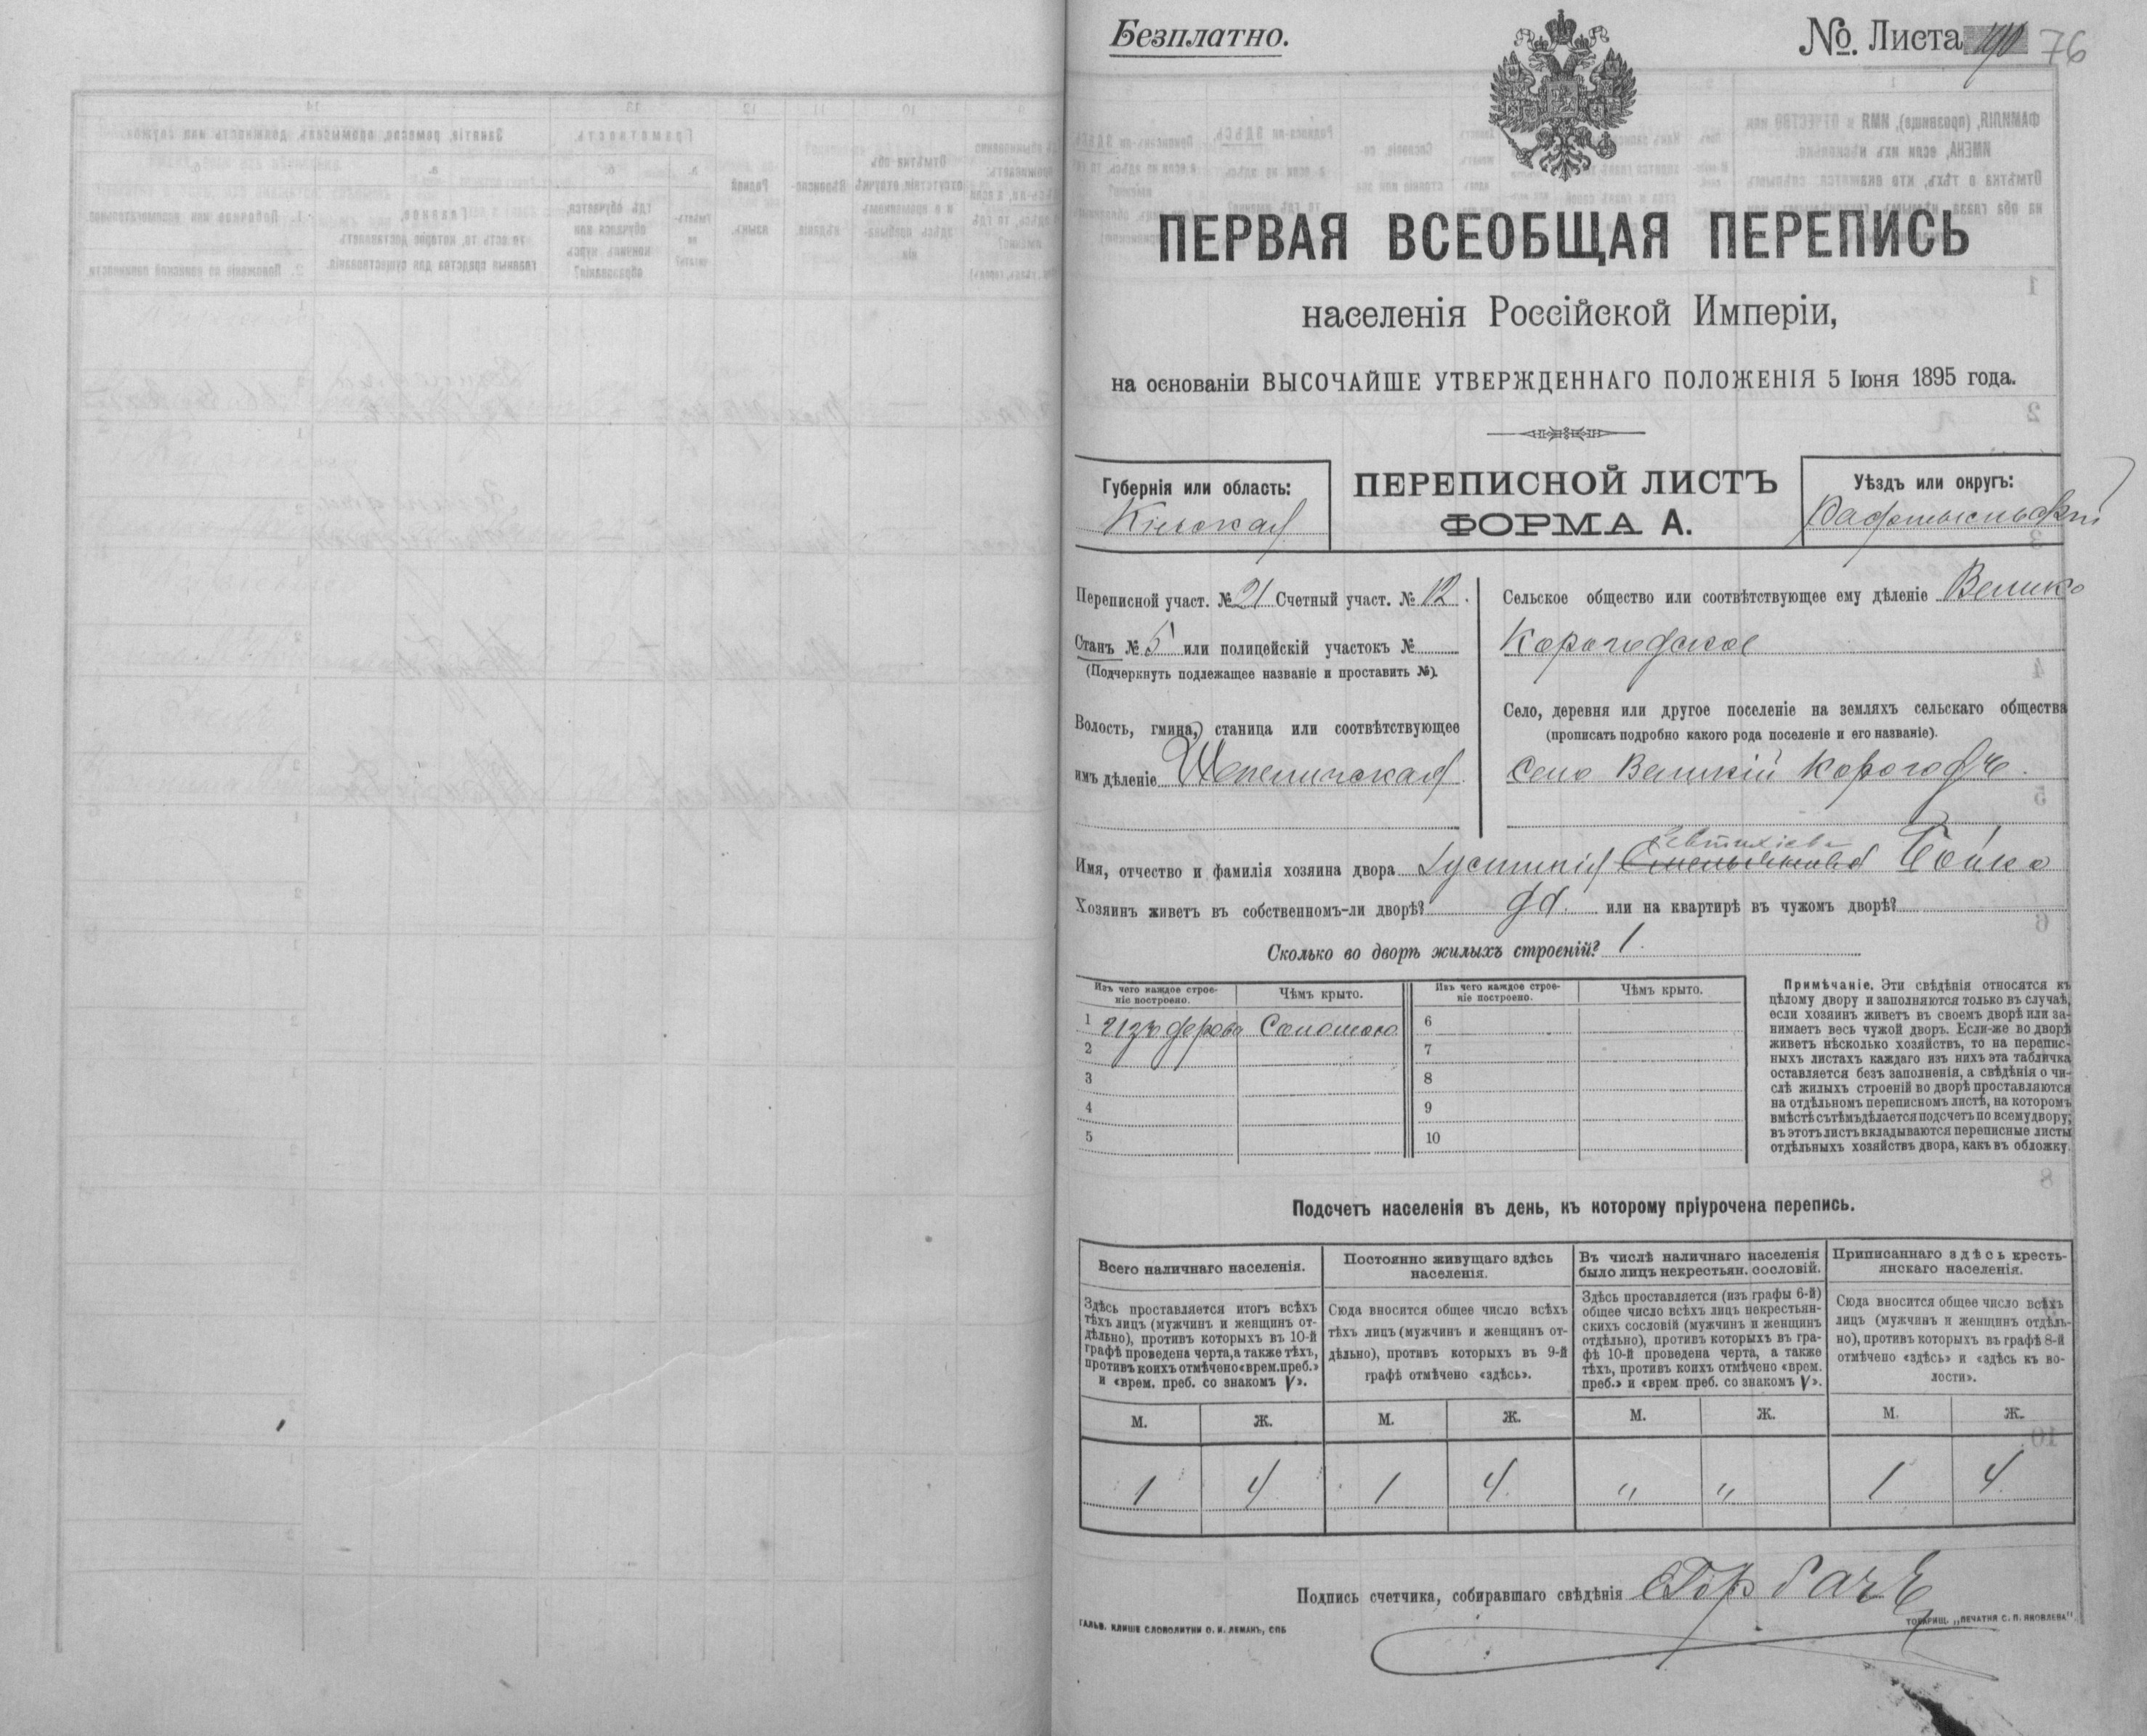 Безплатно.
№ Листа 76
ПЕРВАЯ ВСЕОБЩАЯ ПЕРЕПИСЬ
населенія Россійской Имперіи,
на основаніи ВЫСОЧАЙШЕ УТВЕРЖДЕННАГО ПОЛОЖЕНІЯ 5 Іюня 1895 года.
Губернія или область:
Кіевская
ПЕРЕПИСНОЙ ЛИСТЪ
ФОРМА А.
Уѣздъ или округъ:
Переписной участ. № 21 Счетный участ. № 12.
Станъ № 5 или полицейскій участокъ №
(Подчеркнуть подлежащее названіе и проставить №).
Волость, гмина, станица или соотвѣтствующее
имъ дѣленіе Шепеличская
Сельское общество или соотвѣтствующее ему дѣленіе Велико
Корогодское
Село, деревня или другое поселеніе на земляхъ сельскаго общества
(прописать подробно какого рода поселеніе и его названіе).
село Великій Корогодъ.
Евтихіева
Имя, отчество и фамилія хозяина двора Іустинія Бойко
Хозяинъ живетъ въ собственномъ-ли дворѣ? да. или на квартирѣ въ чужомъ дворѣ?
Сколько во дворѣ жилыхъ строеній? 1.
Изъ чего каждое строе-
ніе построено.
Чѣмъ крыто.
Изъ чего каждое строе-
ніе построено.
Чѣмъ крыто.
1 Изъ дерева Соломою
2
3
4
5
6
7
8
9
10
Примѣчаніе. Эти свѣдѣнія относятся къ
цѣлому двору и заполняются только въ случаѣ,
если хозяинъ живетъ въ своемъ дворѣ или за-
нимаетъ весь чужой дворъ. Если-же во дворѣ
живетъ нѣсколько хозяйствъ, то на перепис-
ныхъ листахъ каждаго изъ нихъ эта табличка
оставляется безъ заполненія, а свѣдѣнія о чи-
слѣ жилыхъ строеній во дворѣ проставляются
на отдѣльномъ переписномъ листѣ, на которомъ
вмѣстѣ съ тѣмъ дѣлается подсчетъ по всему двору;
въ этотъ листъ вкладываются переписные листы
отдѣльныхъ хозяйствъ двора, какъ въ обложку.
Подсчетъ населенія въ день, къ которому пріурочена перепись.
Всего наличнаго населенія.
Здѣсь проставляется итогъ всѣхъ
тѣхъ лицъ (мужчинъ и женщинъ от-
дѣльно), противъ которыхъ въ 10-й
графѣ проведена черта, а также тѣхъ,
противъ коихъ отмѣчено «врем. преб.»
и «врем. преб. со знакомъ V».
Постоянно живущаго здѣсь
населенія.
Сюда вносится общее число всѣхъ
тѣхъ лицъ (мужчинъ и женщинъ от-
дѣльно), противъ которыхъ въ 9-й
графѣ отмѣчено «здѣсь».
Въ числѣ наличнаго населенія
было лицъ некрестьян. сословій.
Здѣсь проставляется (изъ графы 6-й)
общее число всѣхъ лицъ некрестьян-
скихъ сословій (мужчинъ и женщинъ
отдѣльно), противъ которыхъ въ гра-
фѣ 10-й проведена черта, а также
тѣхъ, противъ коихъ отмѣчено «врем.
преб.» и «врем преб. со знакомъ V».
Приписаннаго здѣсь кресть-
янскаго населенія.
Сюда вносится общее число всѣхъ
лицъ (мужчинъ и женщинъ отдѣль-
но), противъ которыхъ въ графѣ 8-й
отмѣчено «здѣсь» и «здѣсь къ во-
лости».
М. Ж. М. Ж. М. Ж. М. Ж.
1 4 1 4 " " 1 4
Подпись счетчика, собиравшаго свѣдѣнія Горбачъ
ГАЛЬВ. КЛИШЕ СЛОВОЛИТНИ О. И. ЛЕМАНЪ, СПБ
ТОВАРИЩ. „ПЕЧАТНЯ С. П. ЯКОВЛЕВА"